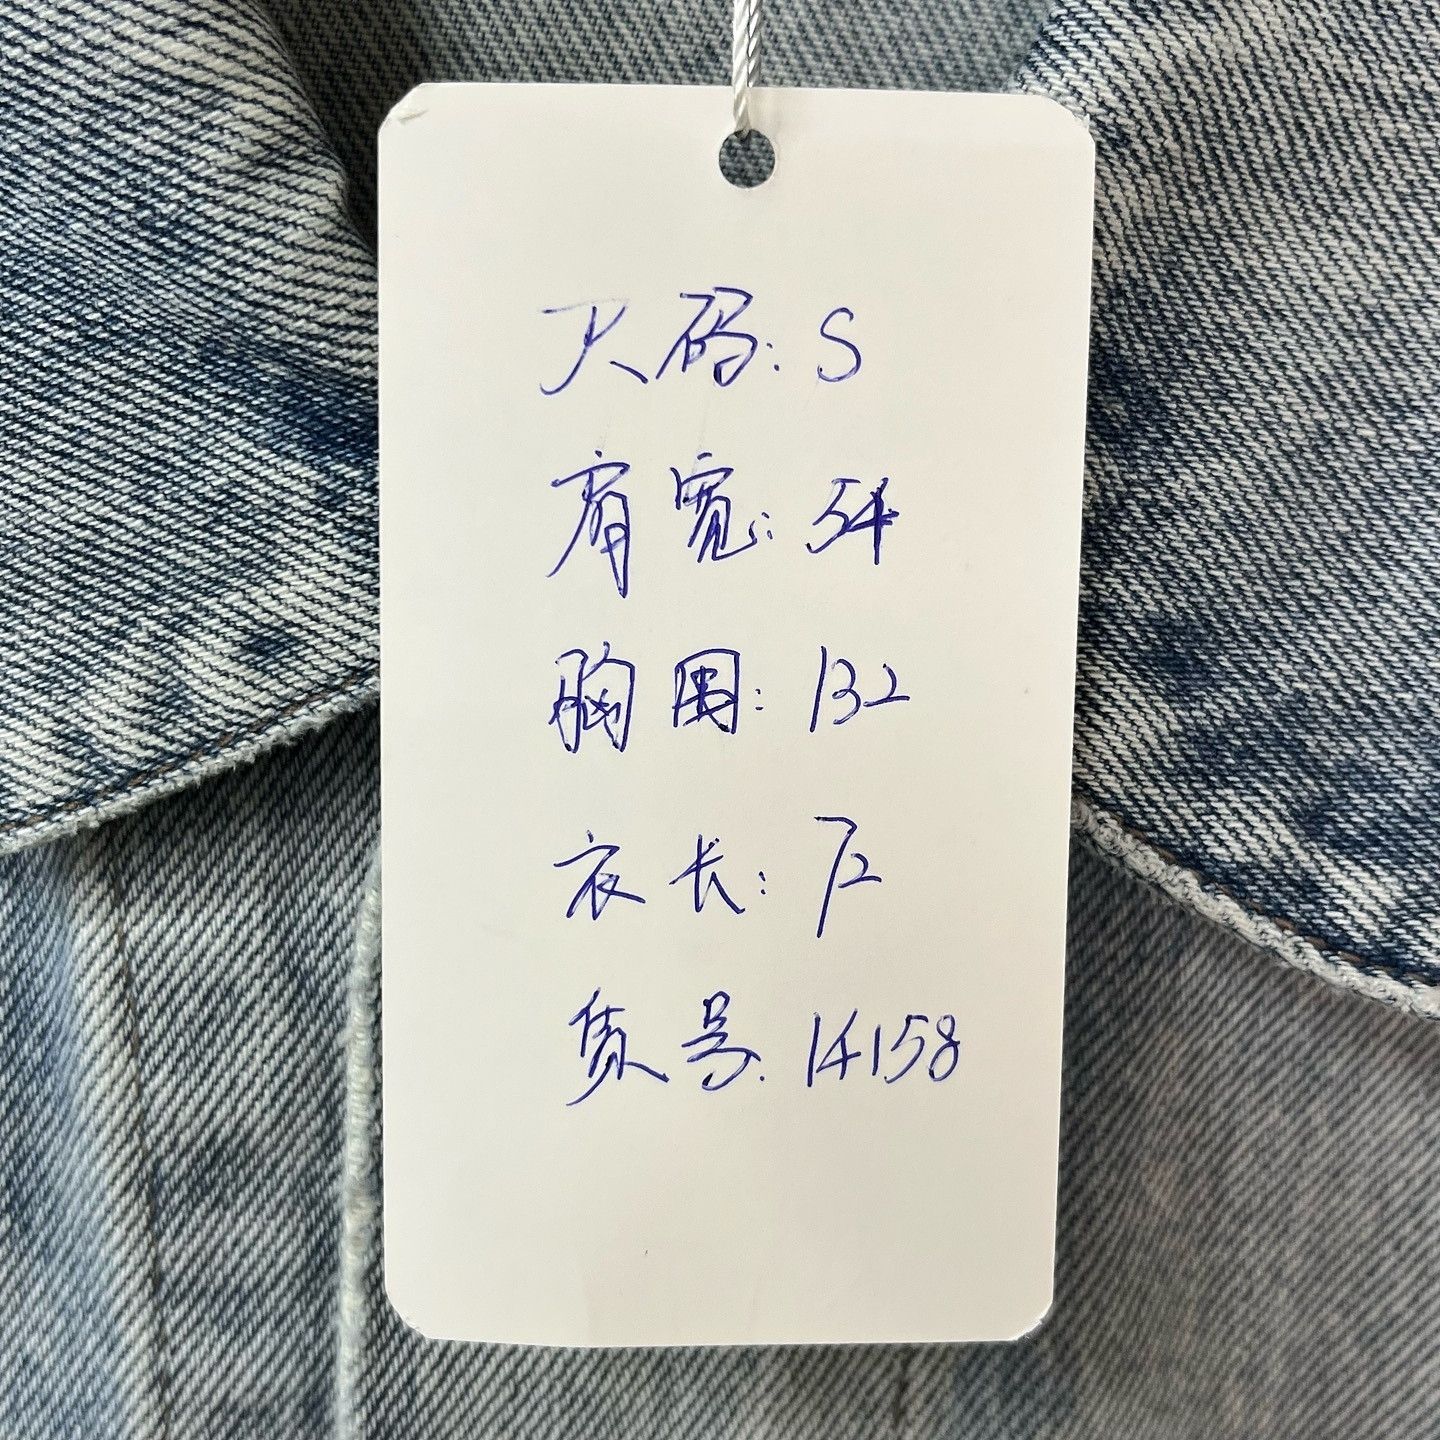 尺码: S
肩宽: 54
胸围: 132
衣长: 72
货号: 14158